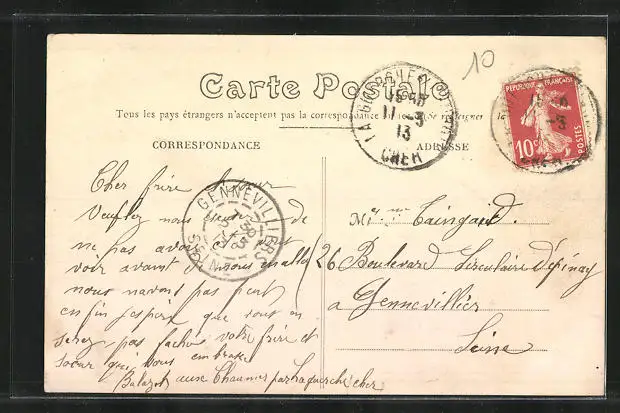 10
Carte Postale
Tous les pays étrangers n'acceptent pas la correspondance
CORRESPONDANCE
ADRESSE
REPUBLIQUE FRANÇAISE
10c
POSTES
LA GUERCHE
11 -3
13
CHER
GENNEVILLIERS
SEINE
Cher frère
Veuillez nous de
ne pas avoir
voir avant nous en allé
nous navons pas peut
en fin j'espère que vous en
serez pas fachés votre frère et
soeur qui vous embrasse
Balazot aux Chaumes par laguerche cher
26 Boulevard Circulaire d'épinay
a Gennevillier
Seine